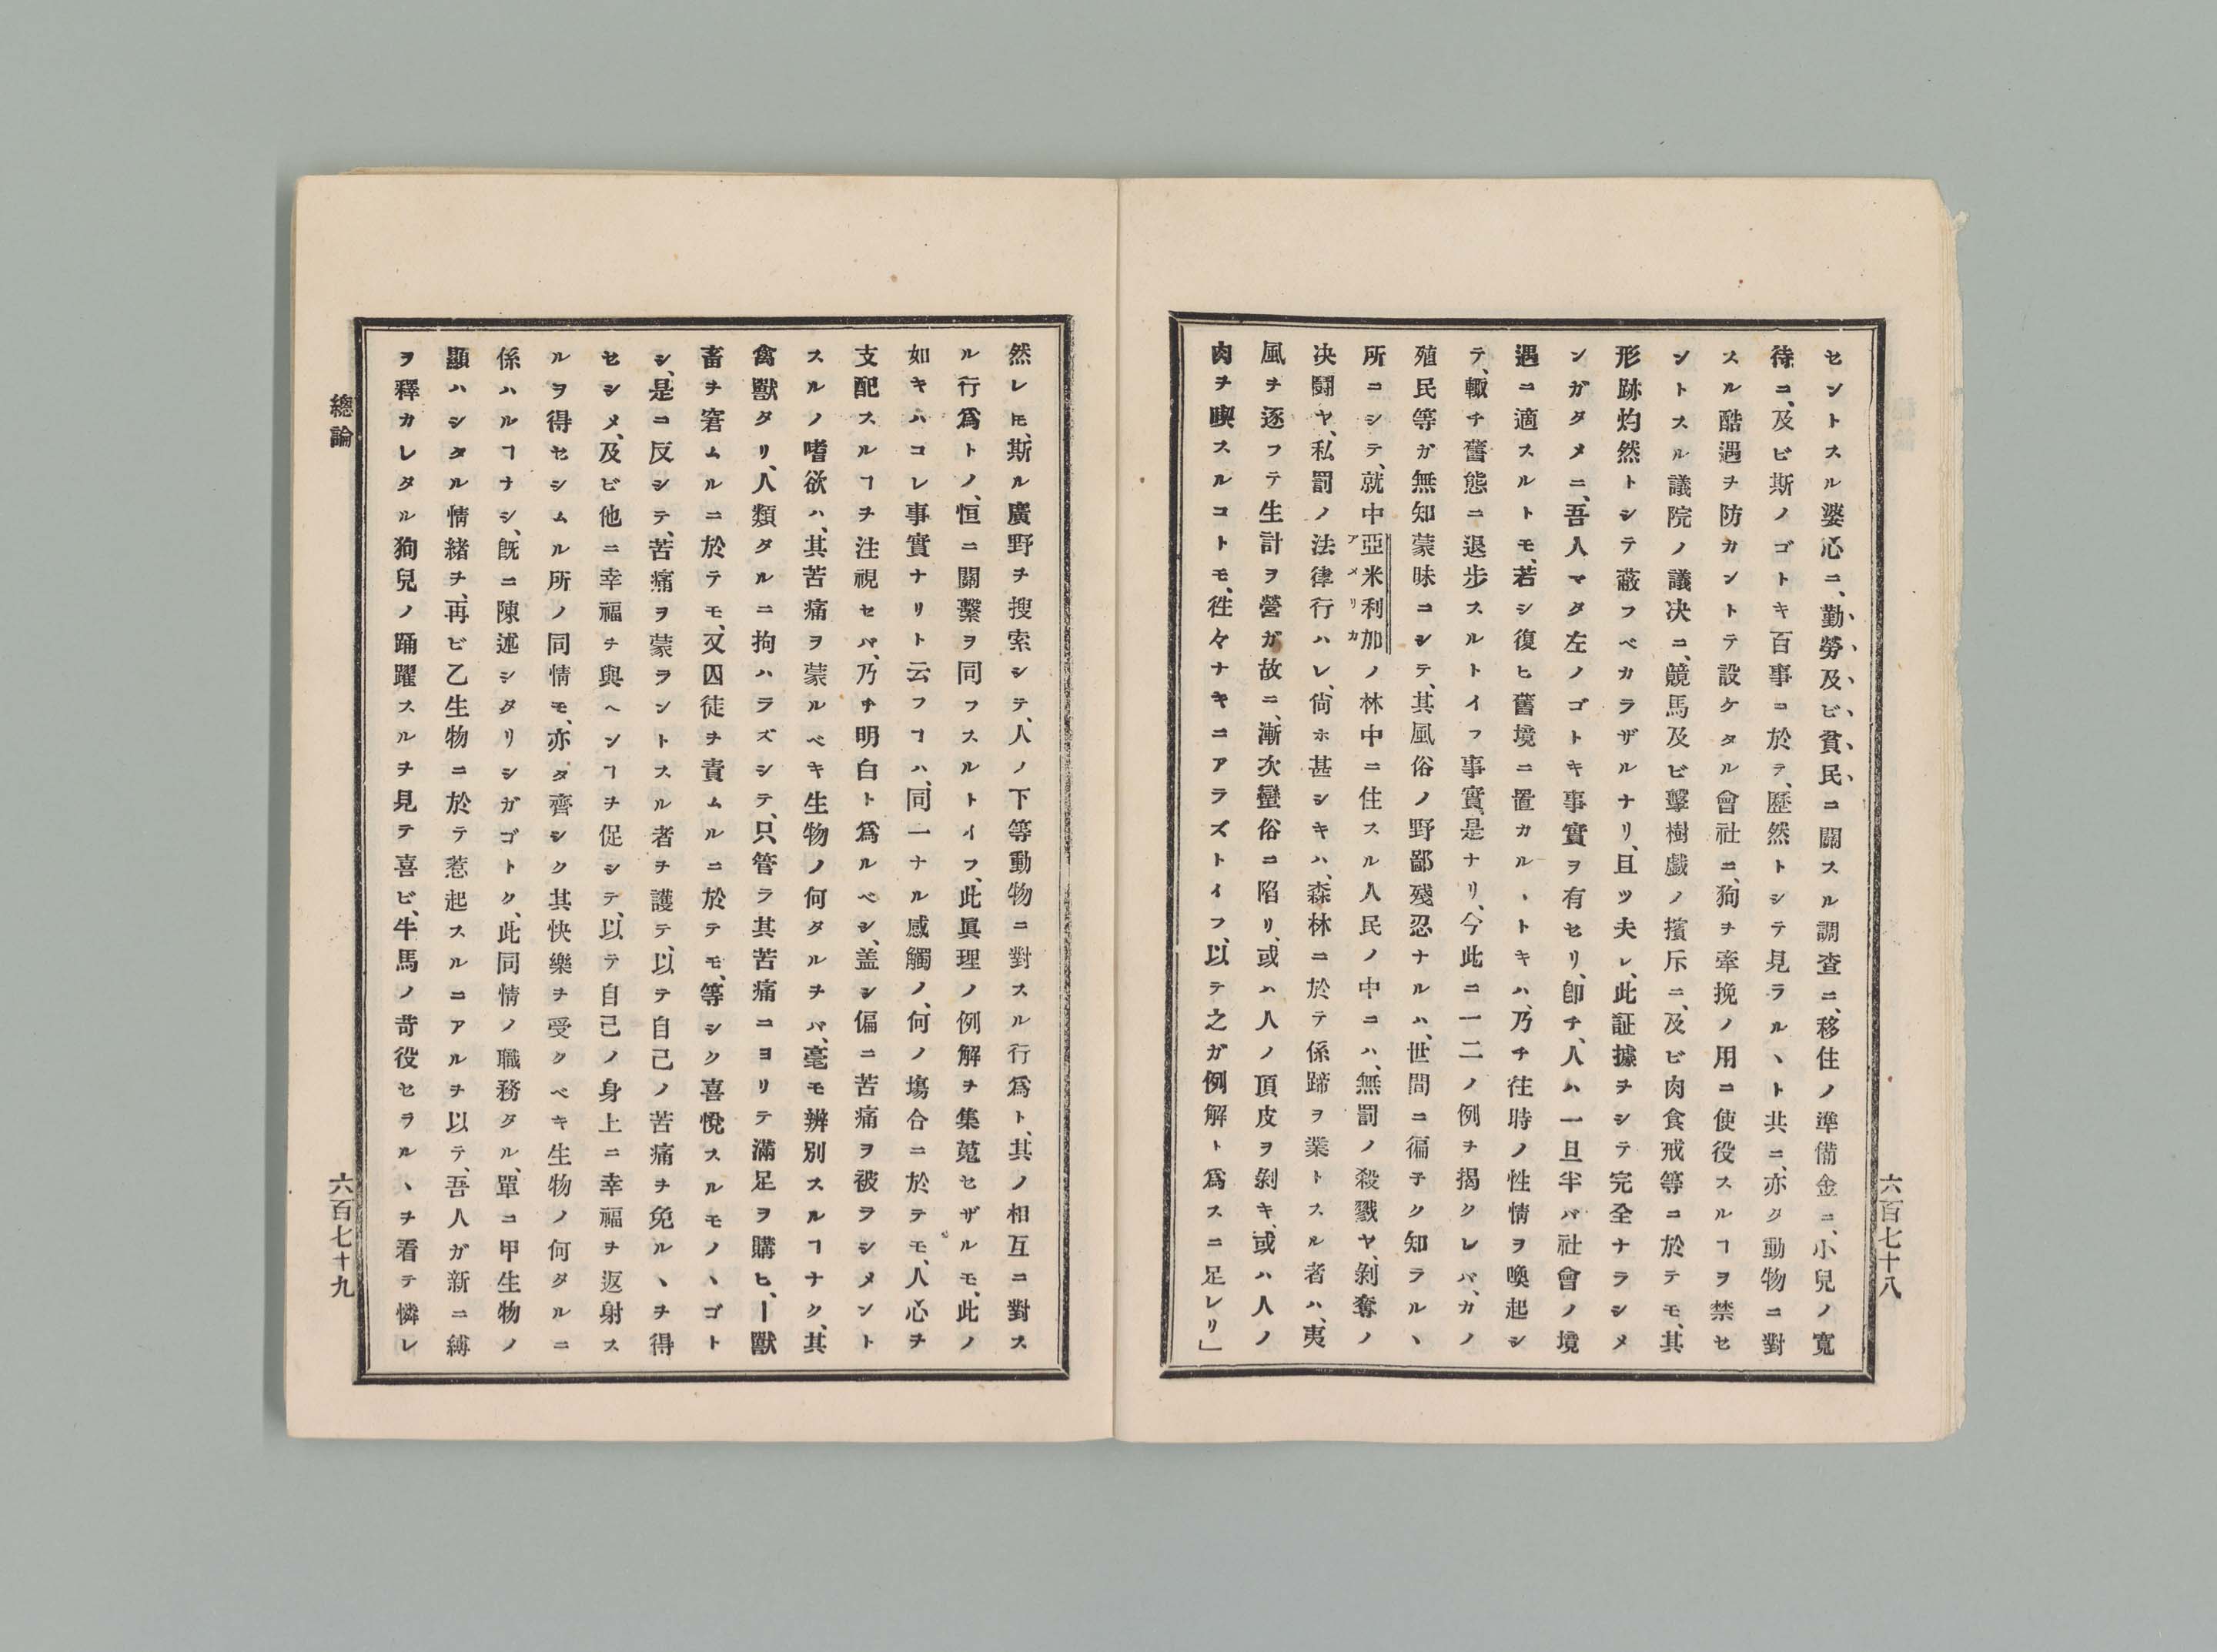 セントスル婆心ニ、勤勞及ビ貧民ニ關スル調査ニ、移住ノ準備金ニ、小兒ノ寬
待ニ、及ビ斯ノゴトキ百事ニ於テ、歷然トシテ見ラルヽト共ニ、亦タ動物ニ對
スル酷遇ヲ防カントテ設ケタル會社ニ、狗ヲ牽挽ノ用ニ使役スルヿヲ禁セ
ントスル議院ノ議决ニ、競馬及ビ擊樹戲ノ擯斥ニ、及ビ肉食戒等ニ於テモ、其
形跡灼然トシテ蔽フベカラザルナリ、且ツ夫レ、此証據ヲシテ完全ナラシメ
ンガタメニ、吾人マタ左ノゴトキ事實ヲ有セリ、卽チ、人ハ一旦半バ社會ノ境
遇ニ適スルトモ、若シ復ヒ舊境ニ置カルヽトキハ、乃チ往時ノ性情ヲ喚起シ
テ、輙チ舊態ニ退步スルトイフ事實、是ナリ、今此ニ一二ノ例ヲ揭クレバ、カノ
殖民等ガ無知蒙昧ニシテ、其風俗ノ野鄙殘忍ナルハ、世間ニ徧子ク知ラルヽ
所ニシテ、就中亞米利加ノ林中ニ住スル人民ノ中ニハ、無罰ノ殺戮ヤ、剝奪ノ
アメリカ
决鬪ヤ、私罰ノ法律行ハレ、尙ホ甚シキハ、森林ニ於テ係蹄ヲ業トスル者ハ、夷
風ヲ逐フテ生計ヲ營ガ故ニ、漸次蠻俗ニ陷リ、或ハ人ノ頂皮ヲ剝キ、或ハ人ノ
肉ヲ喫スルコトモ、徃々ナキニアラズトイフ、以テ之ガ例解ト爲スニ足レリ」
六百七十八
然レㆉ、斯ル廣野ヲ搜索シテ、人ノ下等動物ニ對スル行爲ト、其ノ相互ニ對ス
ル行爲トノ、恒ニ關繫ヲ同フスルトイフ、此眞理ノ例解ヲ集蒐セザルモ、此ノ
如キハコレ事實ナリト云フヿハ、同一ナル感觸ノ、何ノ塲合ニ於テモ、人心ヲ
支配スルヿヲ注視セバ、乃チ明白ト爲ルベシ、盖シ偏ニ苦痛ヲ被ラシメント
スルノ嗜欲ハ、其苦痛ヲ蒙ルベキ生物ノ何タルヲバ、毫モ辨別スルヿナク、其
禽獸タリ、人類タルニ拘ハラズシテ、只管ラ其苦痛ニヨリテ滿足ヲ購ヒ、一獸
畜ヲ窘ムルニ於テモ、又囚徒ヲ責ムルニ於テモ、等シク喜悅スルモノヽゴト
シ、是ニ反シテ、苦痛ヲ蒙ラントスル者ヲ護テ、以テ自己ノ苦痛ヲ免ルヽヲ得
セシメ、及ビ他ニ幸福ヲ與ヘンヿヲ促シテ、以テ自己ノ身上ニ幸福ヲ返射ス
ルヲ得セシムル所ノ同情モ、亦タ齊シク其快樂ヲ受クベキ生物ノ何タルニ
係ハルヿナシ、旣ニ陳述シタリシガゴトク、此同情ノ職務タル、單ニ甲生物ノ
顯ハシタル情緒ヲ、再ビ乙生物ニ於テ惹起スルニアルヲ以テ、吾人ガ新ニ縛
ヲ釋カレタル狗兒ノ踊躍スルヲ見テ喜ビ、牛馬ノ苛役セラルヽヲ看テ憐レ
總論
六百七十九